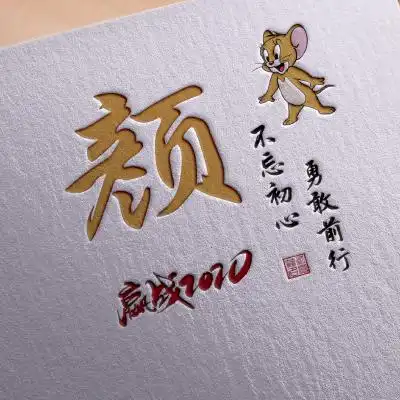 颜
不忘初心
勇敢前行
赢战2020